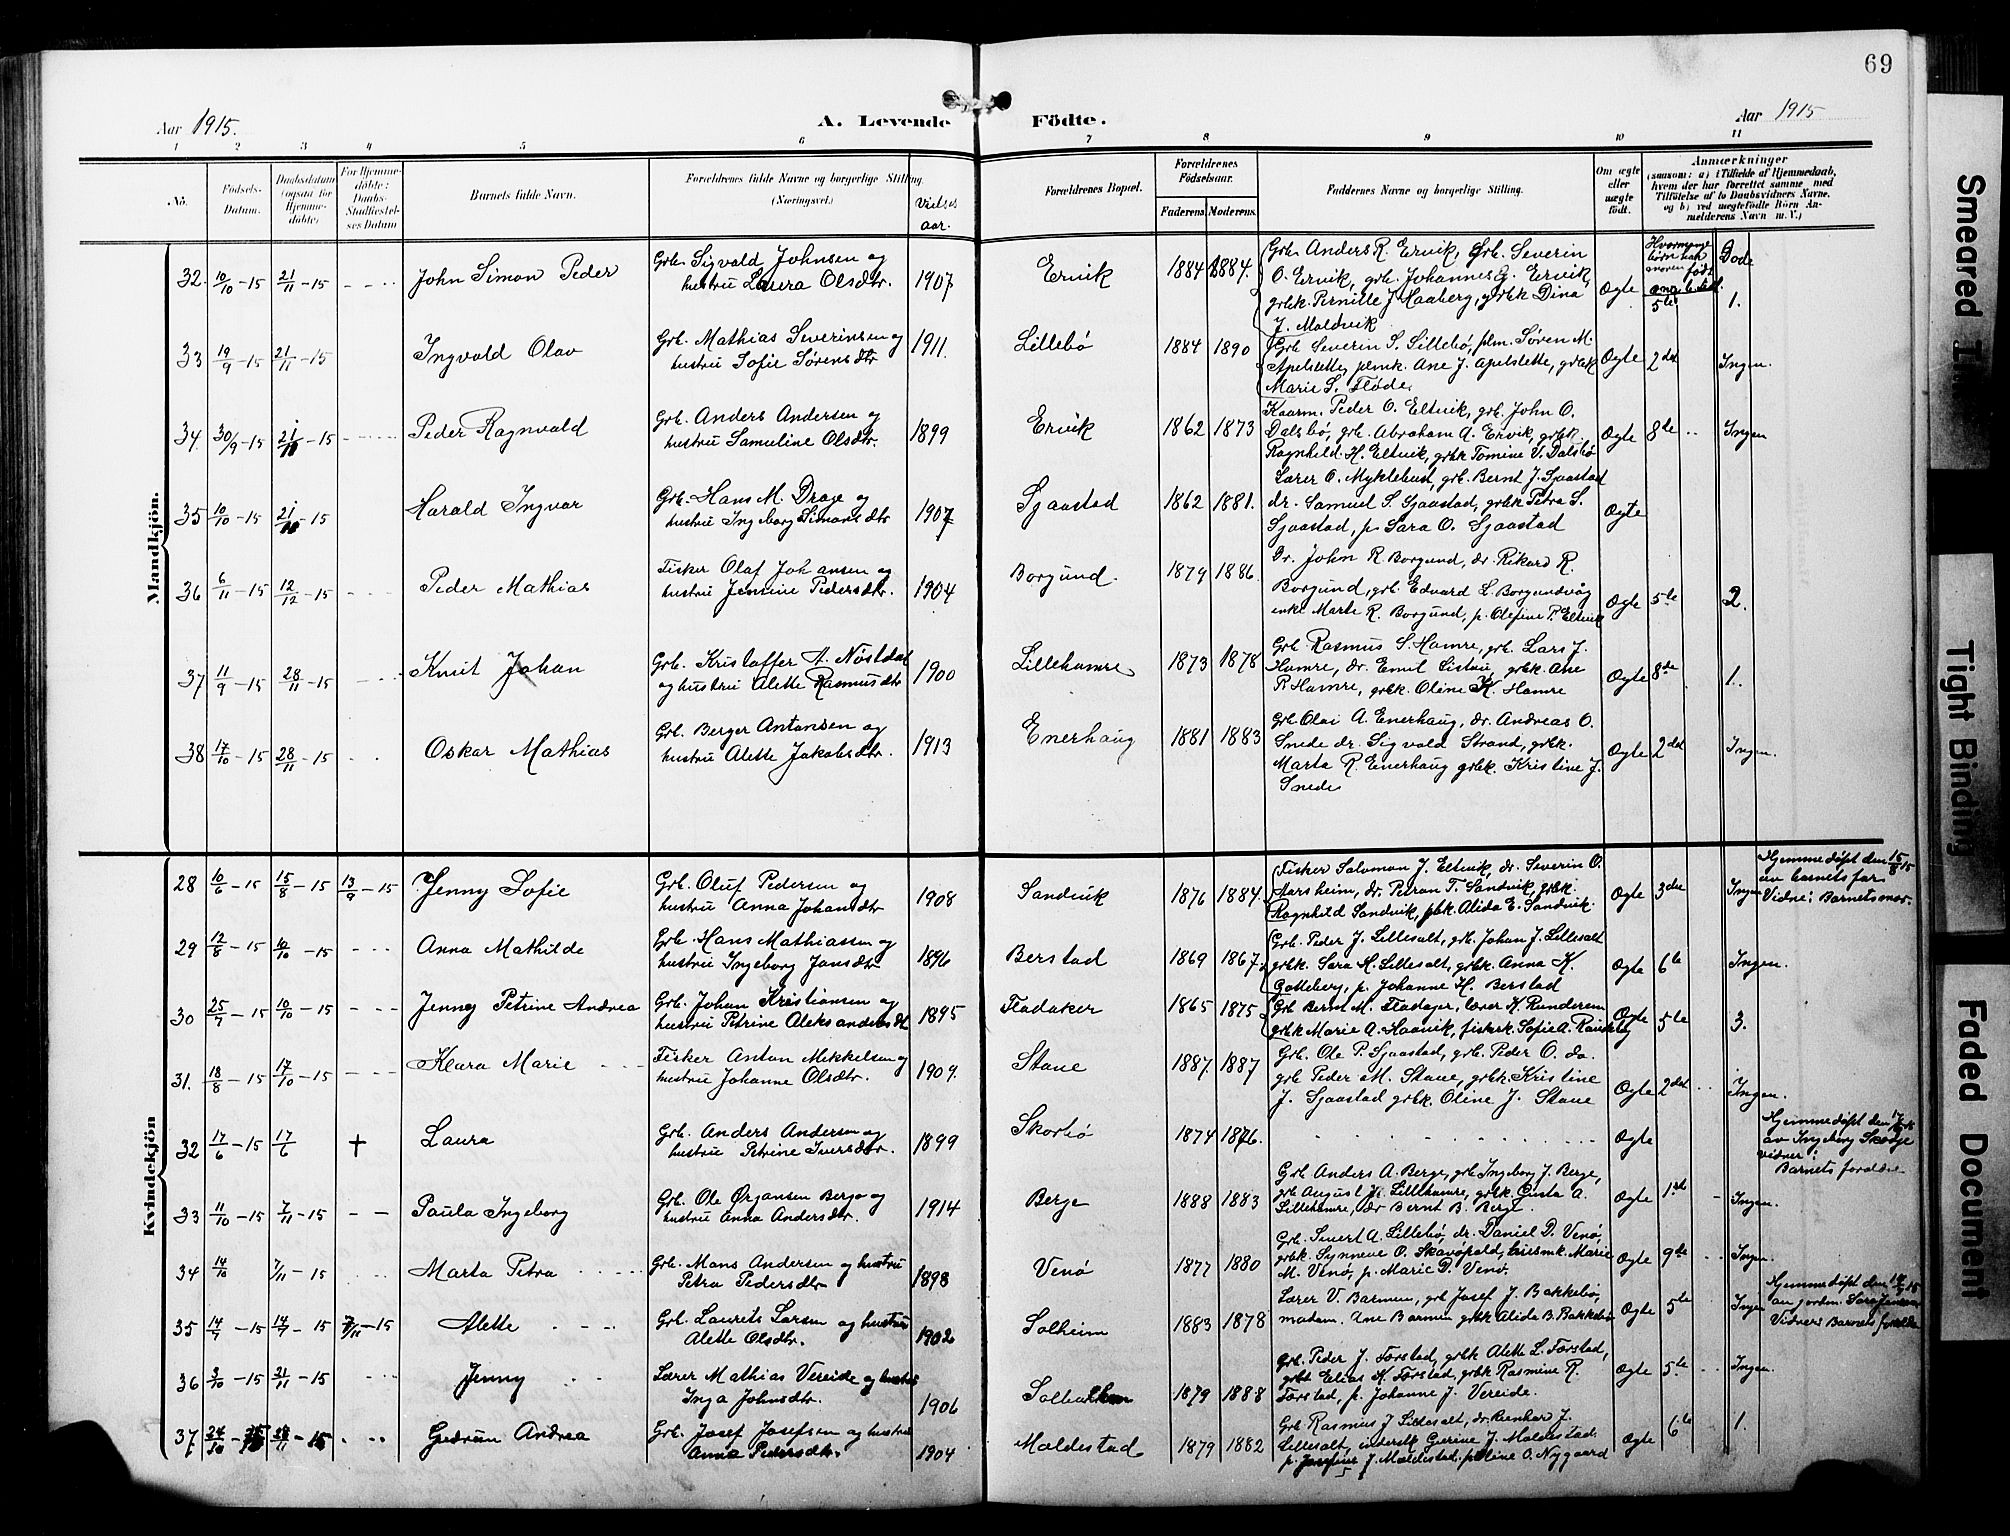 69
Aar 1915.
A. Levende
Födte.
Aar 1915
1 2 3 4 5 6 7 8 9 10 11
No.
Födsels-
Datum.
Daabsdatum
(ogsaa for
Hjemme-
döbte)
For Hjemme-
döbte:
Daabs-
Stadfæstel-
ses Datum
Barnets fulde Navn.
Forældrenes fulde Navne og borgerlige Stilling.
(Næringsvei.)
Vielses
aar.
Forældrenes Bopæl.
Forældrenes
Födselsaar.
Faderens. Moderens.
Faddernes Navne og borgerlige Stilling.
Om ægte
eller
uægte
født.
Anmærkninger
(saasom: a) i Tilfælde af Hjemmedaab,
hvem der har forrettet samme med
Tilføielse af to Daabsvidners Navne.
og b) ved uægtefødte Börn An-
melderens Navn m. V.)
Mandkjön.
32. 10/10-15 21/11-15 John Simon Peder
Grb. Sigvald Johnsen og
hustru Laura Olsdtr. 1907
Ervik 1884 1884.
Grb. Anders R. Ervik, Grb. Severin
O. Ervik, grb. Johannes G. Ervik,
grbk. Pernille J. Haaberg, grbk Dina
J. Moldvik
Ogte 5te Døde 1.
33 19/9-15 21/11-15 Ingvald Olav
Grb. Mathias Severinsen og
hustru Sofie Sørensdtr 1911.
Lillebø 1884 1890
Grb Severin S. Lillebø, plm. Søren M.
Apelstette, plmk. Ane J. Apelstette, grbk
Marie S. Fløde.
Ogte 2det Ingen.
34. 30/9-15 Peder Ragnvald
Grb. Anders Andersen og
hustru Samuline Olsdtr. 1899
Ervik 1862 1873
Kaarm. Peder O. Eltvik, grb. John O.
Dalsbø, grb. Abraham A. Ervik, grbk.
Ragnhild H. Eltvik, grbk Tomine V. Dalsbø
Ogte 8de Ingen
35 10/10-15 Harald Ingvar
Grb. Hans M. Drage og
hustru Ingeborg Simonsdtr 1907
Sjaastad 1862 1881.
Lærer O. Myklebust, grb. Bernt J. Sjaastad
dr. Samuel S. Sjaastad, grbk Petra S.
Sjaastad, p. Sara O. Sjaastad
Ogte
36 6/11-15 12/12-15 Peder Mathias
Fisker Olaf Johansen og
hustru Jensine Pedersdtr. 1904
Borgund. 1879 1886.
Dr. John R. Borgund, dr. Rikard R.
Borgund, grb. Edvard L. Borgundvåg
enke Marte R. Borgund, p. Olefine P. Eltvik
Ogte 5te 2.
37 11/9-15 28/11-15 Knut Johan
Grb. Kristoffer A. Nöstdal
og hustru Alette Rasmusdtr 1900
Lillehamre 1873 1878
Grb Rasmus S. Hamre, grb. Lars J.
Hamre, dr. Emil Listau, grbk. Ane
R Hamre, grbk. Oline K. Hamre
Ogte 8de 1.
38 17/10-15 28/11-15 Oskar Mathias
Grb. Berger Antonsen og
hustru Alette Jakobsdtr. 1913
Enerhaug 1881 1883
Grb Olai A. Enerhaug, dr. Andreas O.
Snede dr. Sigvald Strand, grbk.
Marta R. Enerhaug grbk. Kristine J.
Snede
Ogte 2det Ingen.
Kvindekjön
28 10/6-15 15/8-15 13/9-15 Jenny Sofie
Grb. Oluf Pedersen og
hustru Anna Johansdtr 1908
Sandvik 1876 1884.
Fisker Salomon J. Eltvik, dr. Severin O.
Aarsheim, dr. Peran T. Sandvik, grbk.
Ragnhild Sandvik, pbk Alida E. Sandvik.
Ogte 3die Ingen
Hjemmedøpt den 15/8 15
av barnets far
Vidne: Barnets mor.
29 12/8-15 10/10-15 Anna Mathilde
Grb. Hans Mathiassen og
hustru Ingeborg Jansdtr 1896
Berstad 1869 1867.
Grb. Peder J. Lillesalt, grb. Johan J. Lillesalt
grbk. Sara M. Lillesalt, grbk. Anna K.
Gotteberg, p. Johanne H. Berstad
Ogte 6te Ingen.
30 25/7-15 10/10-15 Jenny Petrine Andrea
Grb. Johan Kristiansen og
hustru Petrine Aleksandersdt 1895
Fladaker 1865 1875
Grb Bernt M. Fladager, lærer K Runderem
grbk Marie A. Haavik, fiskerk. Sofie A.
Ogte 5te 3.
31. 18/8-15 17/10-15 Klara Marie
Fisker Anton Mekkelsen og
hustru Johanne Olsdtr. 1909.
Stave 1887. 1887
Grb. Ole P. Sjaastad, grb. Peder O. do.
grb Peder M. Stave, grbk. Kristine
J. Sjaastad grbk. Oline J. Stave
Ogte 2det Ingen.
32 17/6-15 17/6 + Laura
Grb. Anders Andersen og
hustru Petrine Iversdtr. 1899
Skorbø 1874 1876.
Ogte
Hjemmedøpt den 17/6
av Ingeborg Skadje
vidner:
Barnets foreldre
33 11/10-15 7/11-15 Paula Ingeborg
Grb. Ole Ørjansen Berge og
hustru Anna Andersdtr. 1914
Berge 1888 1883
Grb Anders A. Berge, grb Ingeborg J. Berge,
grb August Lillehamre, grbk. Gusta A.
Lillehamre, dr Bernt B. Berge.
Ogte 1st Ingen.
34 14/10 7/11-15 Marta Petra
Grb. Mons Andersen og hustru
Petra Pedersdtr 1898
Venø 1877 1880
Grb. Sivert A. Lillebø, dr. Daniel D. Venø,
grbk. Synneve O. Skavøpold, husmk. Marie
M. Venø, p. Marie D. Venø.
Ogte 9de Ingen
35 14/7-15 14/7-15 7/11-15 Alette
Grb. Laurits Larsen og hustru
Alette Olsdtr. 1902
Solheim 1883 1878
Lærer V. Barmen, grb Josef J. Bakkebø,
madam. Ane Barmen grbk Alida B. Bakkebø
Ogte 5te Ingen
Hjemmedøpt den 14/7 15
av jordm. Sara Jensen
Vidner Barnets foreldre
36 3/10-15 21/11-15 Jenny
Lærer Mathias Vereide og hustru
Inga Johnsdtr. 1906
1879 1888
Grb. Peder J. Førstad, grbk Alette L. Førstad,
grbk Elias K. Førstad, grbk Rasmine R.
Førstad, p. Johanne J. Vereide.
Ogte 5te Ingen.
37 24/10 28/11-15 Gudrun Andrea
Grb. Josef Josefsen og hustru
Anna Pedersdtr. 1904
Moldestad 1879 1882
Grb. Rasmus J Lillesalt, dr. Reinhard J.
Lillesalt, inderstk Gurine J. Moldestad
p. Josefine J. Moldestad. p. Oline O. Nygaard
Ogte 6te 1.
Smeared Ink
Tight Binding
Faded Document